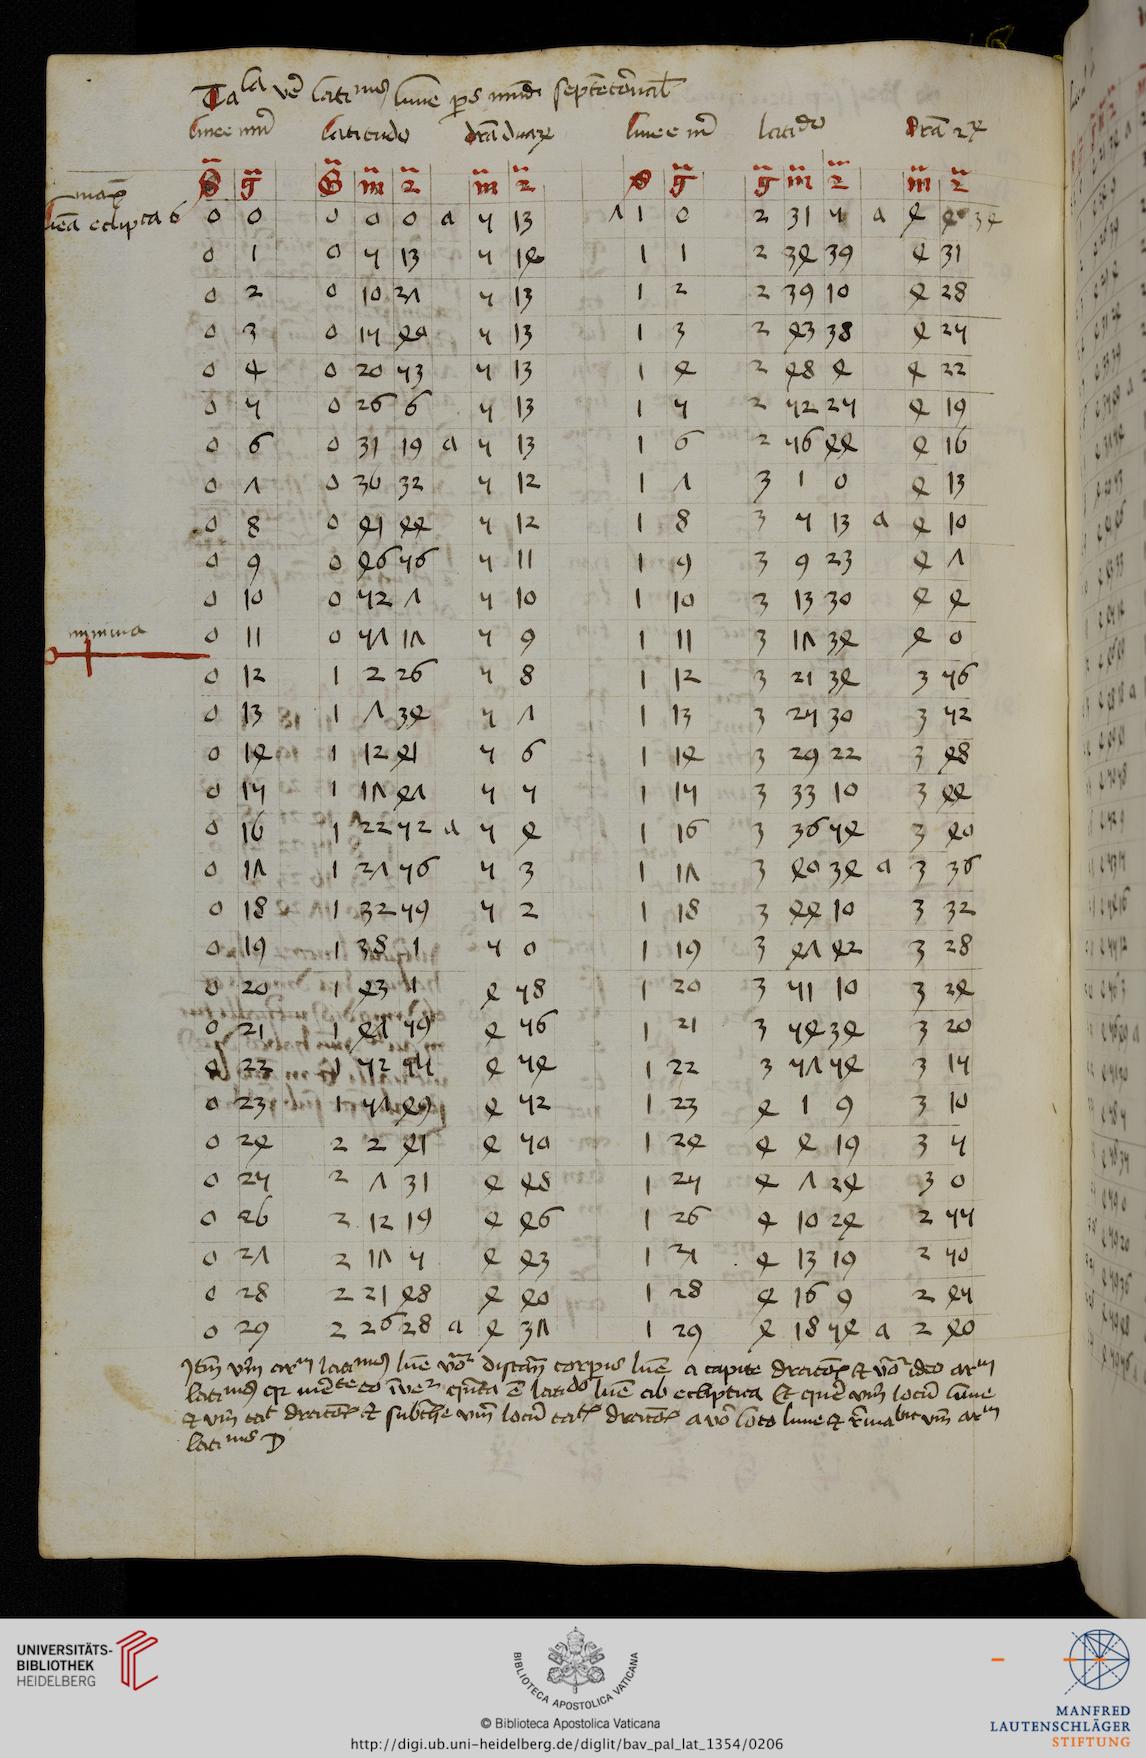 Tala vē latinus lune ps mūdi septētōnal
linee nūi latitudo drā duaȝ linee nū latido drā 2ȝ
S g G m 2 m 2 S g g m 2 m 2
maxª
linea ecliptica 6 0 0 0 0 0 a 5 13 1 0 2 31 5 a 4 34
0 1 0 5 13 5 14 1 1 2 34 39 4 31
0 2 0 10 27 5 13 1 2 2 39 10 4 28
0 3 0 15 40 5 13 1 3 2 43 38 4 25
0 4 0 20 53 5 13 1 4 2 48 4 4 22
0 5 0 26 6 5 13 1 5 2 52 25 4 19
0 6 0 31 19 a 5 13 1 6 2 56 44 4 16
0 7 0 36 32 5 12 1 7 3 1 0 4 13
0 8 0 41 44 5 12 1 8 3 5 13 a 4 10
0 9 0 46 56 5 11 1 9 3 9 23 4 7
0 10 0 52 7 5 10 1 10 3 13 30 4 4
minima
0 11 0 57 17 5 9 1 11 3 17 34 4 0
0 12 1 2 26 5 8 1 12 3 21 34 3 56
0 13 1 7 34 5 7 1 13 3 25 30 3 52
0 14 1 12 41 5 6 1 14 3 29 22 3 48
0 15 1 17 47 5 5 1 15 3 33 10 3 44
0 16 1 22 52 a 5 4 1 16 3 36 54 3 40
0 17 1 27 56 5 3 1 17 3 40 34 a 3 36
0 18 1 32 59 5 2 1 18 3 44 10 3 32
0 19 1 38 1 5 0 1 19 3 47 42 3 28
0 20 1 43 1 4 58 1 20 3 51 10 3 24
0 21 1 47 59 4 56 1 21 3 54 34 3 20
0 22 1 52 55 4 54 1 22 3 57 54 3 15
0 23 1 57 49 4 52 1 23 4 1 9 3 10
0 24 2 2 41 4 50 1 24 4 4 19 3 5
0 25 2 7 31 4 48 1 25 4 7 24 3 0
0 26 2 12 19 4 46 1 26 4 10 24 2 55
0 27 2 17 5 4 43 1 27 4 13 19 2 50
0 28 2 21 48 4 40 1 28 4 16 9 2 45
0 29 2 26 28 a 4 37 1 29 4 18 54 a 2 40
Itm vm arm latinus lūe distam corpus lūe a capite dracōs et ideo arm
latinus qr cū eo qnta ē latido lūe ab ecliptica Et quē vm locū lune
et vm cat dracōs et subthe vm locū catis dracōs a vō loco lune et rmabit vm arm
latinus D
UNIVERSITÄTS-
BIBLIOTHEK
HEIDELBERG
BIBLIOTECA APOSTOLICA VATICANA
© Biblioteca Apostolica Vaticana
http://digi.ub.uni-heidelberg.de/diglit/bav_pal_lat_1354/0206
MANFRED
LAUTENSCHLÄGER
STIFTUNG